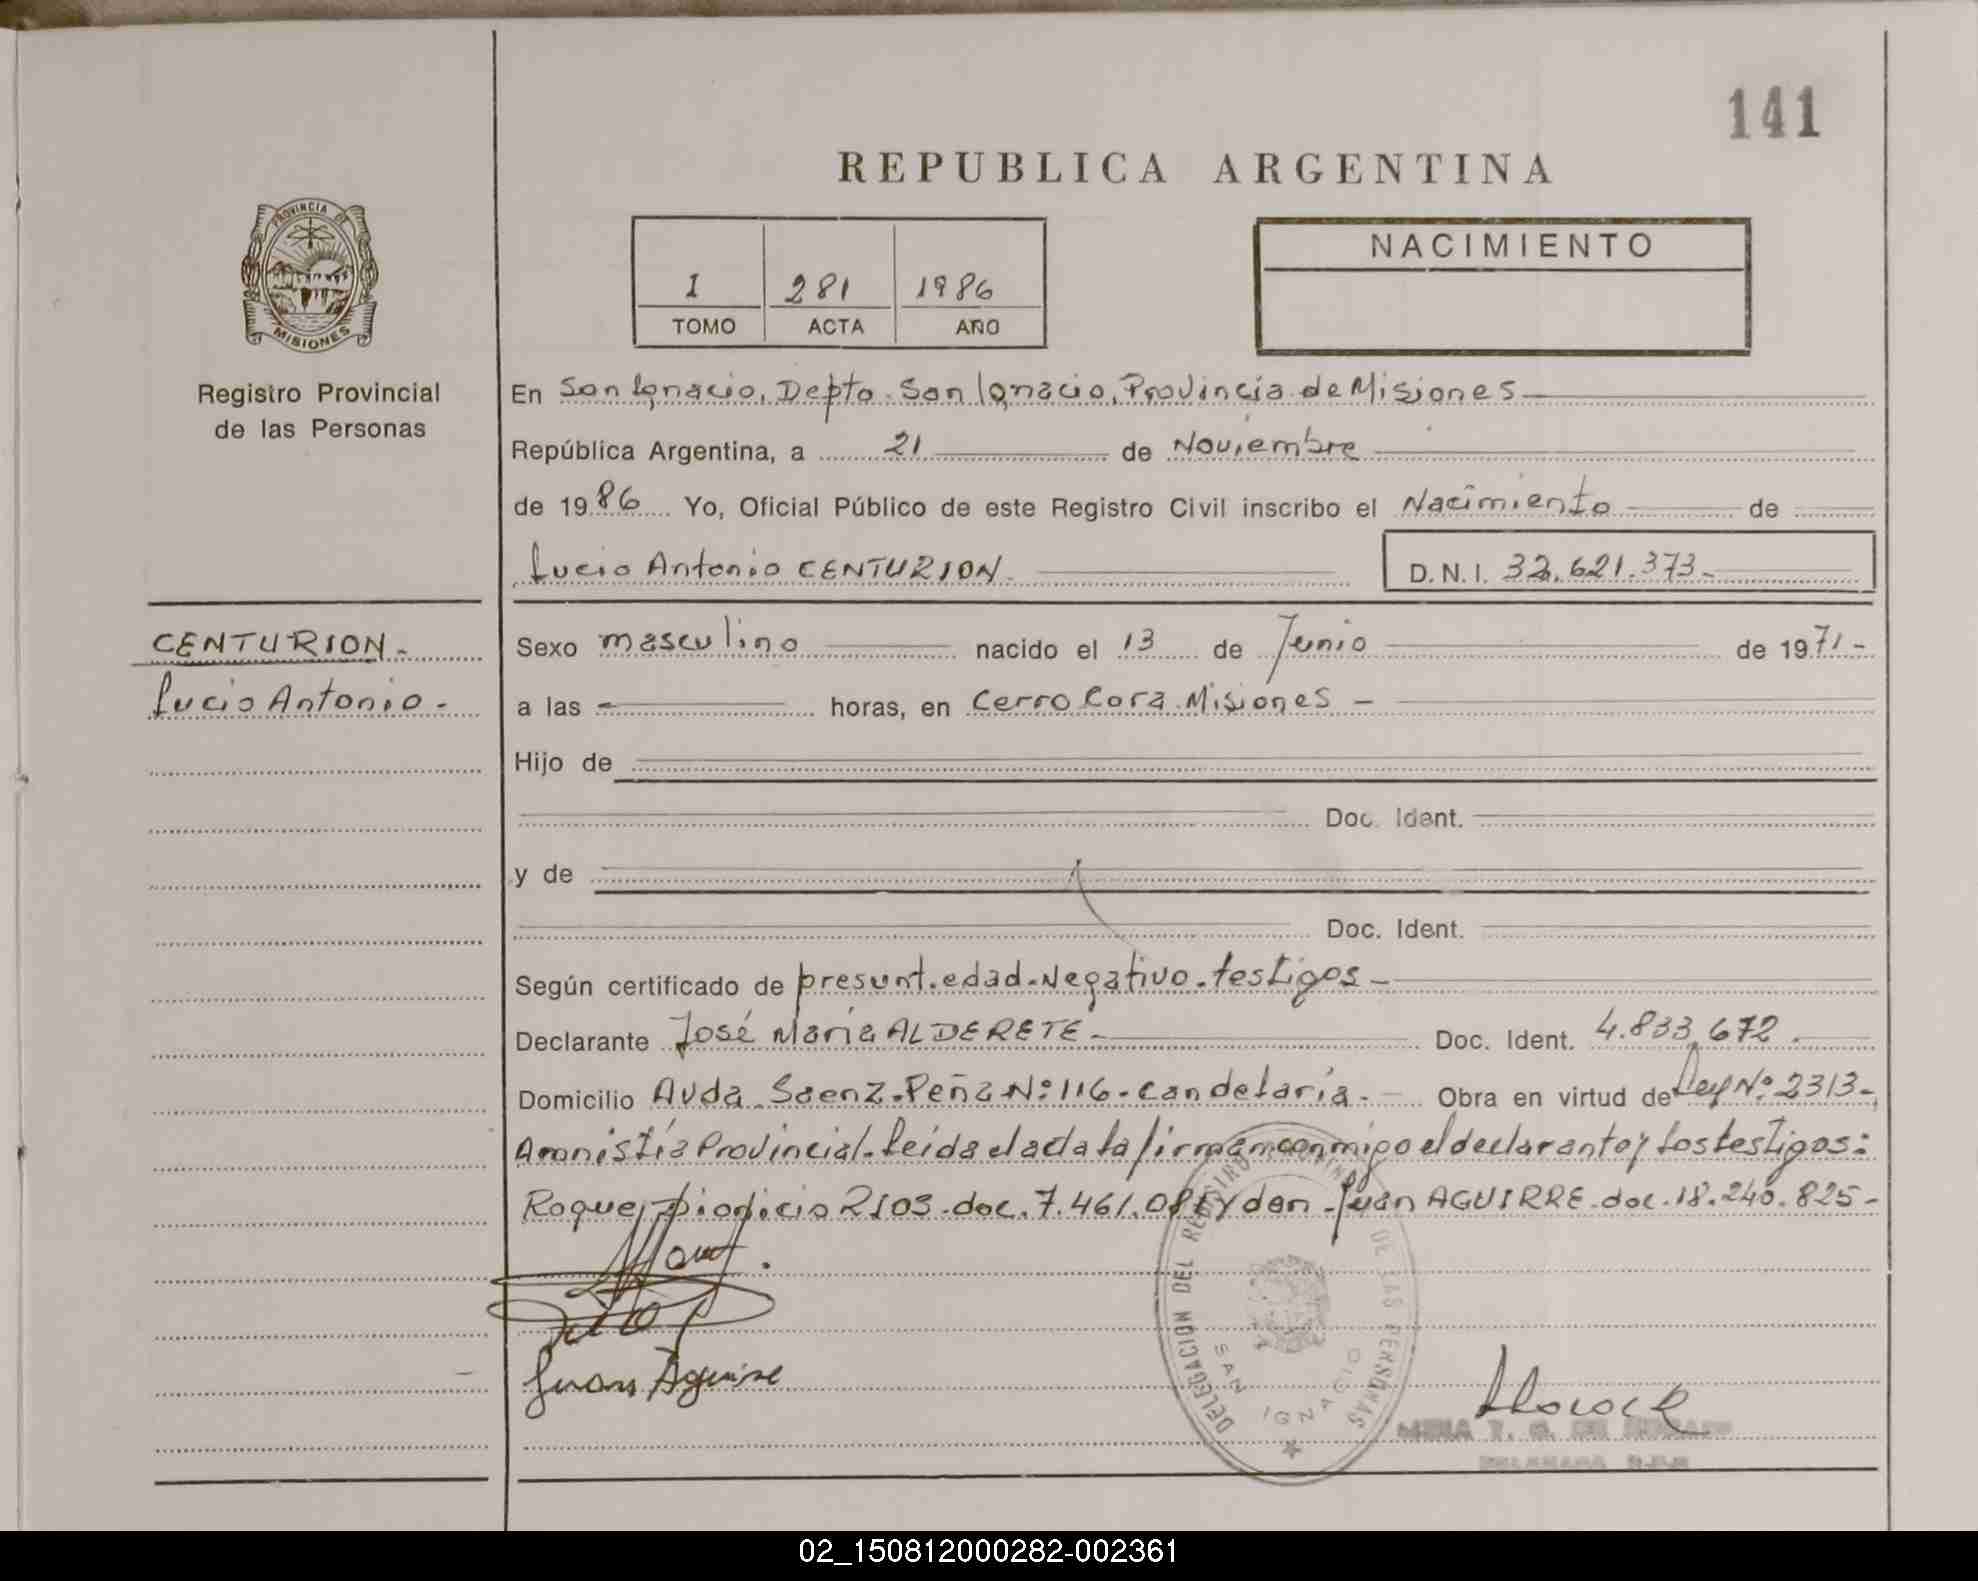 141
REPUBLICA ARGENTINA
PROVINCIA DE
MISIONES
Registro Provincial
de las Personas
I 281 1986
TOMO ACTA AÑO
NACIMIENTO
En San Ignacio, Depto. San Ignacio, Provincia de Misiones
República Argentina, a 21 de Noviembre
de 1986 Yo, Oficial Público de este Registro Civil inscribo el Nacimiento de
Lucio Antonio CENTURION. D.N.I. 32.621.373-
CENTURION-
Lucio Antonio-
Sexo masculino nacido el 13 de Junio de 1971-
a las - horas, en Cerro Cora Misiones -
Hijo de
Doc. Ident.
y de
Doc. Ident.
Según certificado de presunt. edad-Negativo-testigos-
Declarante José Maria ALDERETE- Doc. Ident. 4.833.672
Domicilio Avda. Saenz-Peña Nº 116-Candelaria- Obra en virtud de Ley Nº 2313-
Amnistía Provincial-Leida el acta la firman conmigo el declarante y los testigos:
Roque RIOS-doc. 7.461.081 y don Juan AGUIRRE-doc. 18.240.825-
Juan Aguirre
DELEGACION DEL REGISTRO PROVINCIAL DE LAS PERSONAS
SAN IGNACIO
02_150812000282-002361